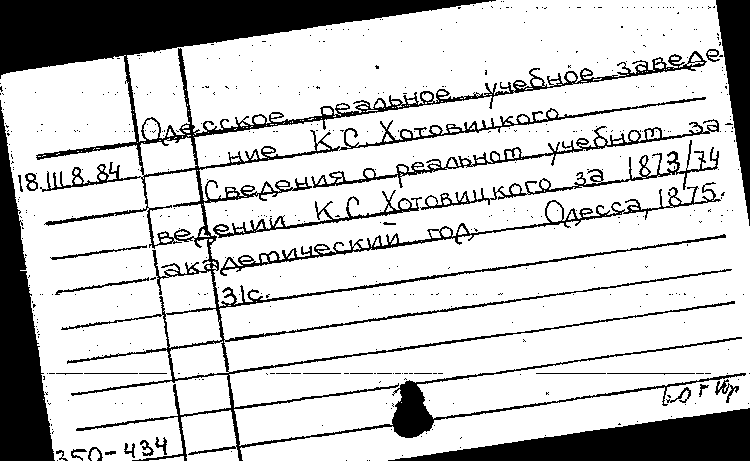 Одесское реальное учебное заведе
ние К.С. Хотовицкого.
18.III 8.84
Сведения о реальном учебном за-
ведении К.С. Хотовицкого за 1873/74
академический год. Одесса, 1875.
31с.
350-434